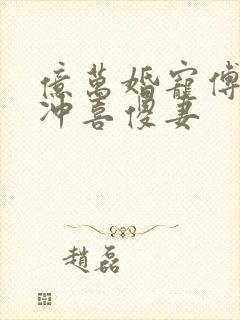 億萬婚寵傅
沖喜傻妻
趙磊